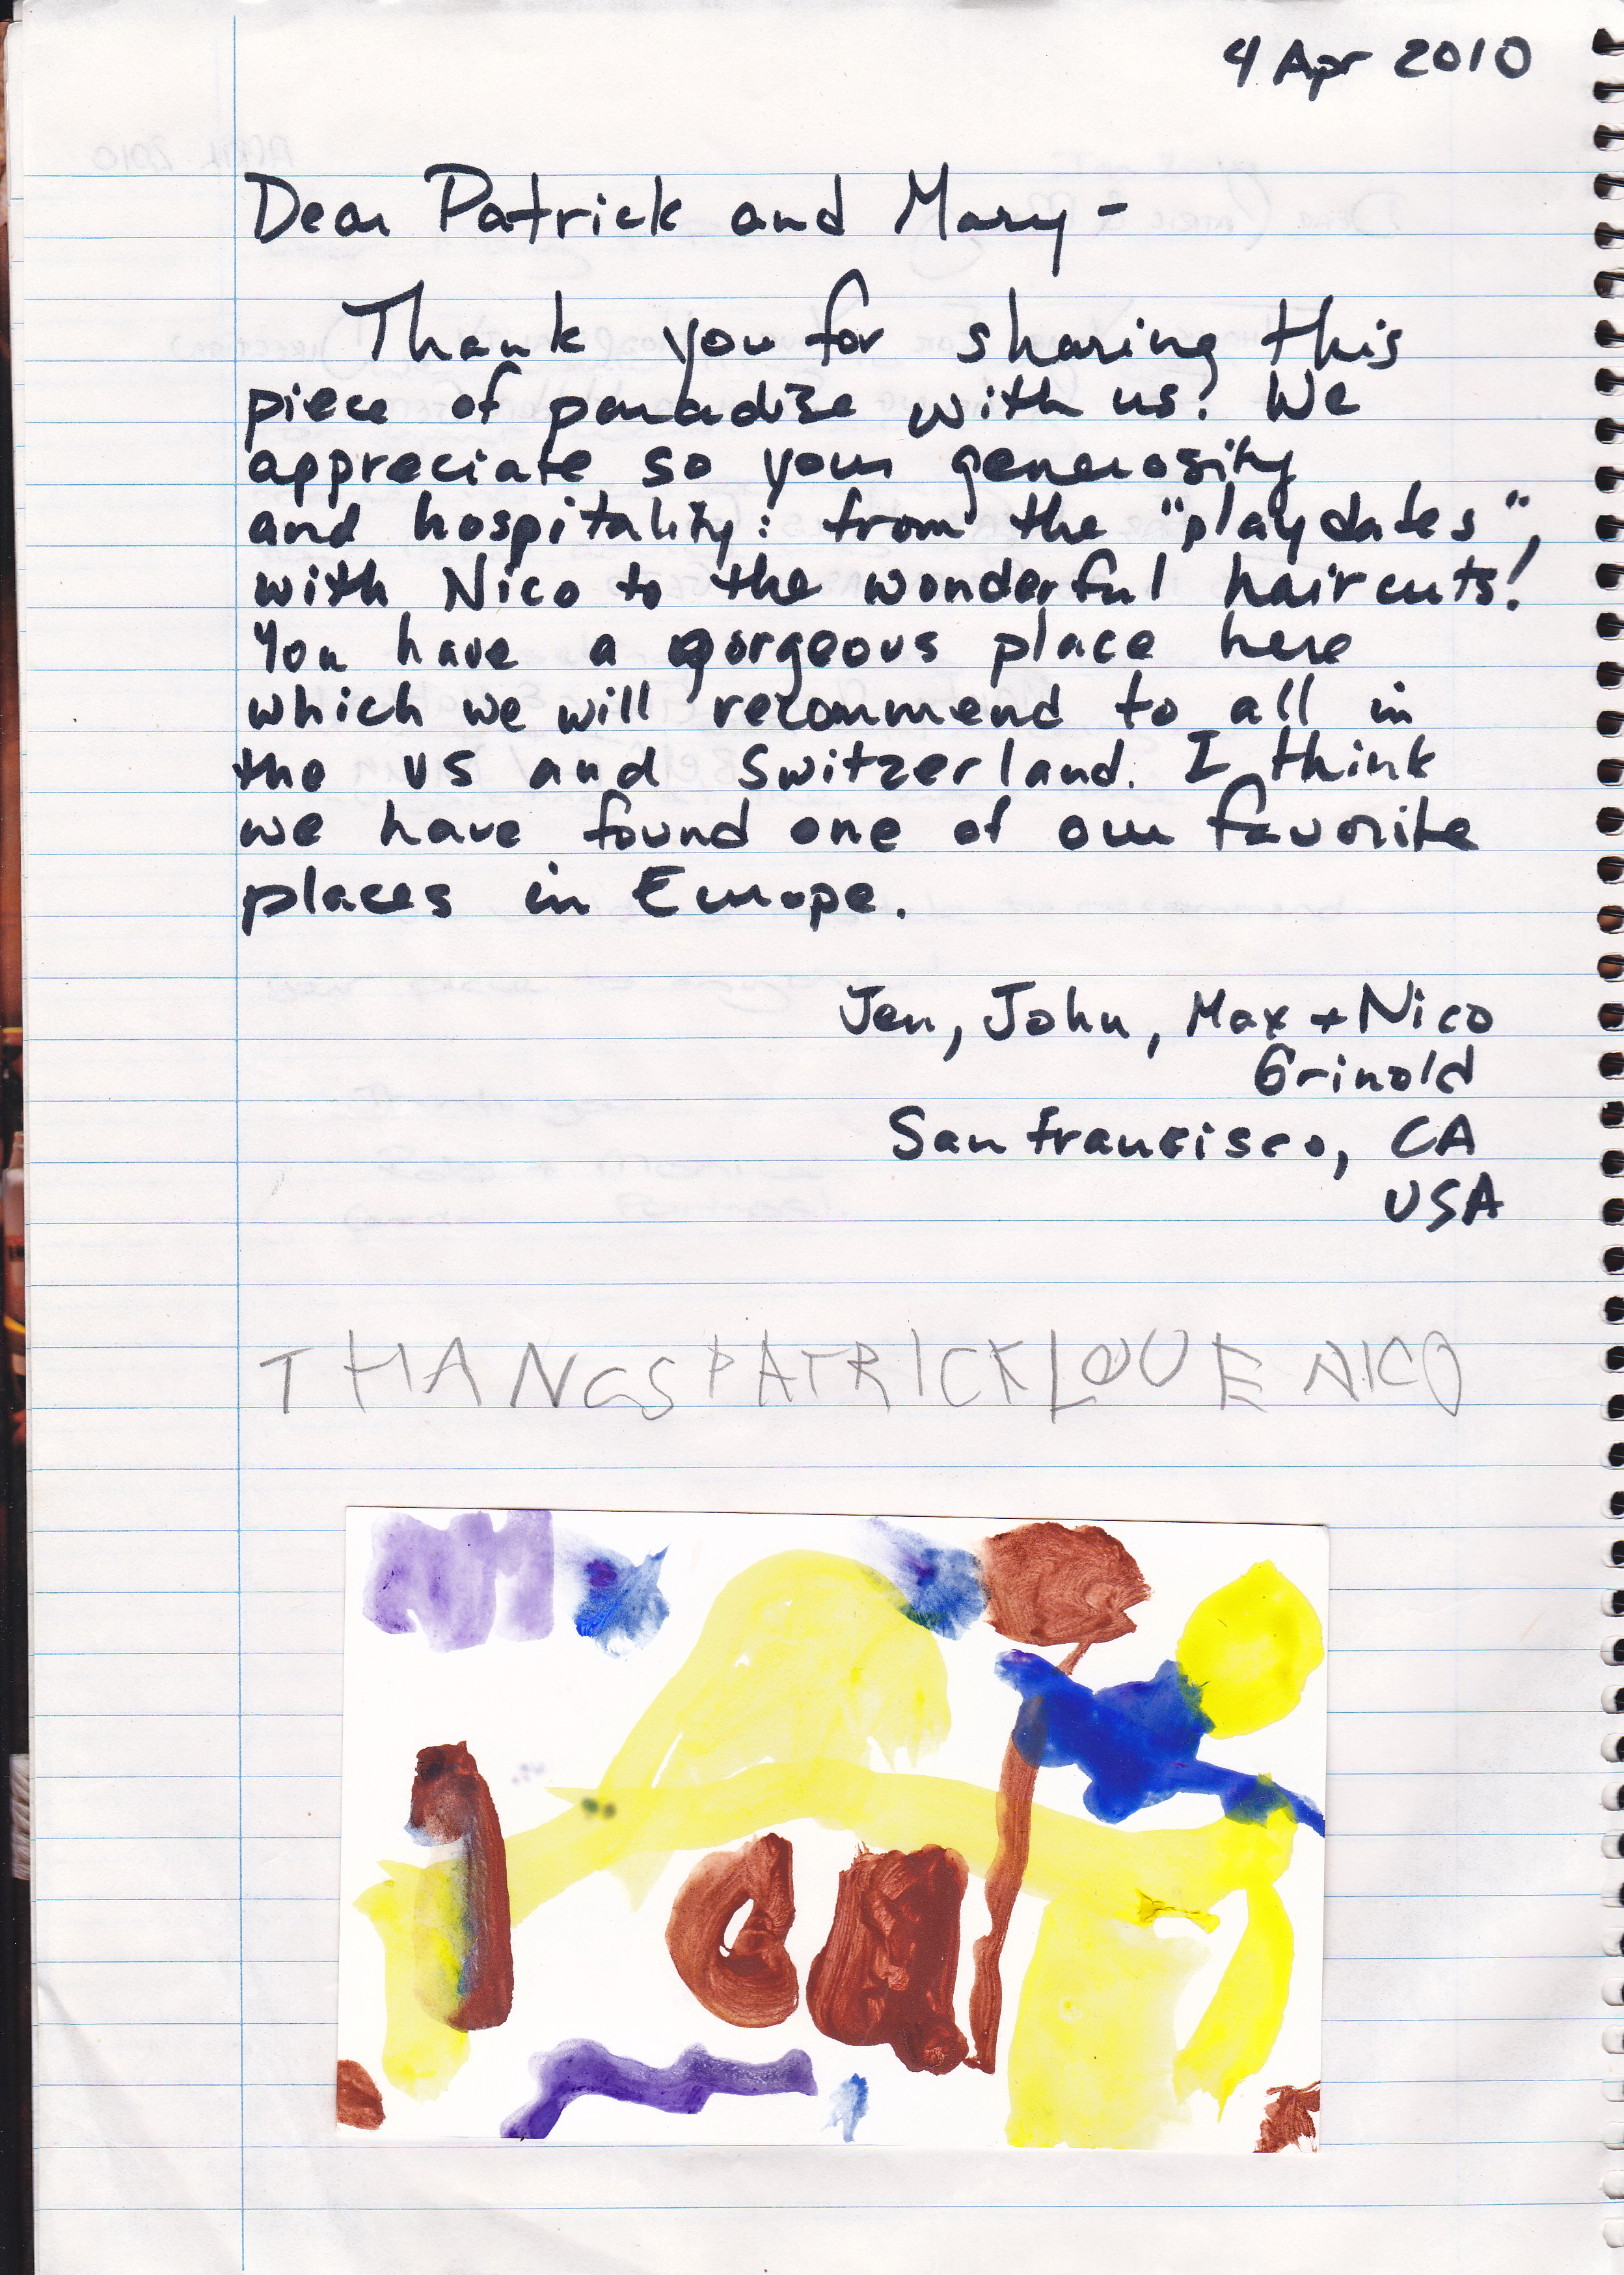 4 Apr 2010
Dear Patrick and Mary -
Thank you for sharing this
piece of paradise with us! We
appreciate so your generosity
and hospitality: from the "playdates",
with Nico to the wonderful haircuts!
You have a gorgeous place here
which we will recommend to all in
the US and Switzerland. I think
we have found one of our favorite
places in Europe.
Jen, John, Max + Nico
Grinold
San Francisco, CA
USA
THANCS PATRICK LOVE NICO